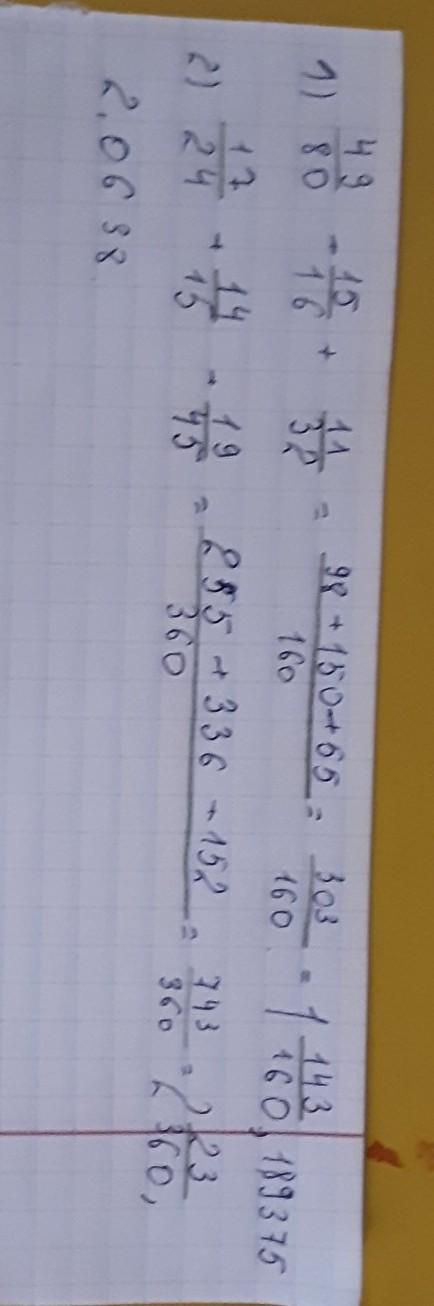 1) 49/80 + 15/16 + 11/32 = 98+150+55/160 = 303/160 = 1 143/160, 1,89375
2) 17/24 + 14/15 + 19/45 = 255+336+152/360 = 743/360 = 2 23/360,
2.0638